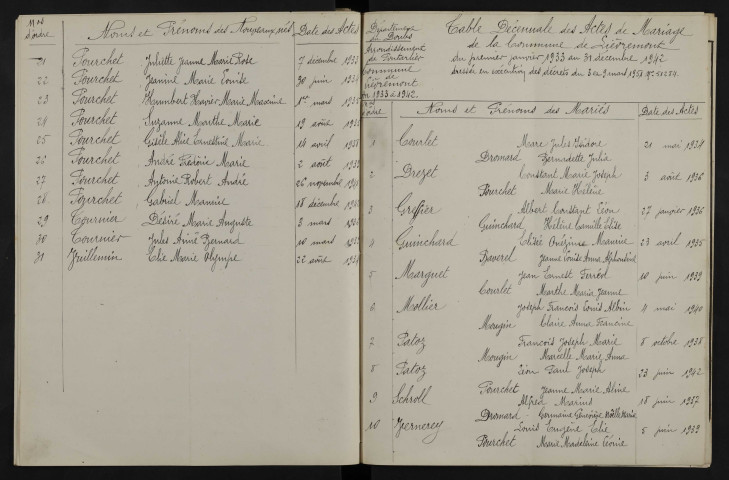 Nos d'ordre Noms et Prénoms des Nouveaux nés Date des Actes
21 Pourchet Juliette Jeanne Marie Rose 7 décembre
22 Pourchet Janine Marie Louise 30 juin
23 Pourchet Humbert Xavier Marie Maxime 1er mars
24 Pourchet Suzanne Marthe Marie 19 août
25 Pourchet Gisèle Alice Ernestine Marie 14 avril
26 Pourchet André Frédéric Marie 2 août
27 Pourchet Antoine Robert André 26 novembre
28 Pourchet Gabriel Maurice 18 décembre
29 Tournier Désiré Marie Auguste 3 mars
30 Tournier Jules Aimé Bernard 10 mars
31 Vuillemin Élie Marie Olympe 22 août
Département du Doubs
Arrondissement de Pontarlier
Commune de Lièvremont
de 1933 à 1942.
Table Décennale des Actes de Mariage
de la Commune de Lièvremont
du premier janvier 1933 au 31 décembre 1942
dressée en exécution des décrets du 3 et 9 mars
Nos d'ordre Noms et Prénoms des Mariés Date des Actes
1 Courlet Marc Jules Isidore 21 mai 1938
Dromard Bernadette Julia
2 Drezet Constant Marie Joseph 3 août 1936
Pourchet Marie Hélène
3 Greffier Albert Constant Léon 27 janvier 1936
Guinchard Hélène Camille Élise
4 Guinchard Élisée Onézime Maurice 23 avril 1935
Baverel Jeanne Louise Anna Alphonsine
5 Marguet Jean Ernest Ferréol 10 juin 1939
Courlet Marthe Marie Jeanne
6 Mollier Joseph François Louis Albin 11 mai 1940
Mougin Claire Anna Francine
7 Patoz François Joseph Marie 8 octobre 1938
Mougin Marcelle Marie Anna
8 Patoz Léon Paul Joseph 23 juin 1942
Pourchet Jeanne Marie Aline
9 Schroll Alfred Marius 18 juin 1937
Dromard Germaine Geneviève Noëlle Marie
10 Vernerey Louis Eugène Élie 5 juin 1939
Pourchet Marie Madeleine Léonie